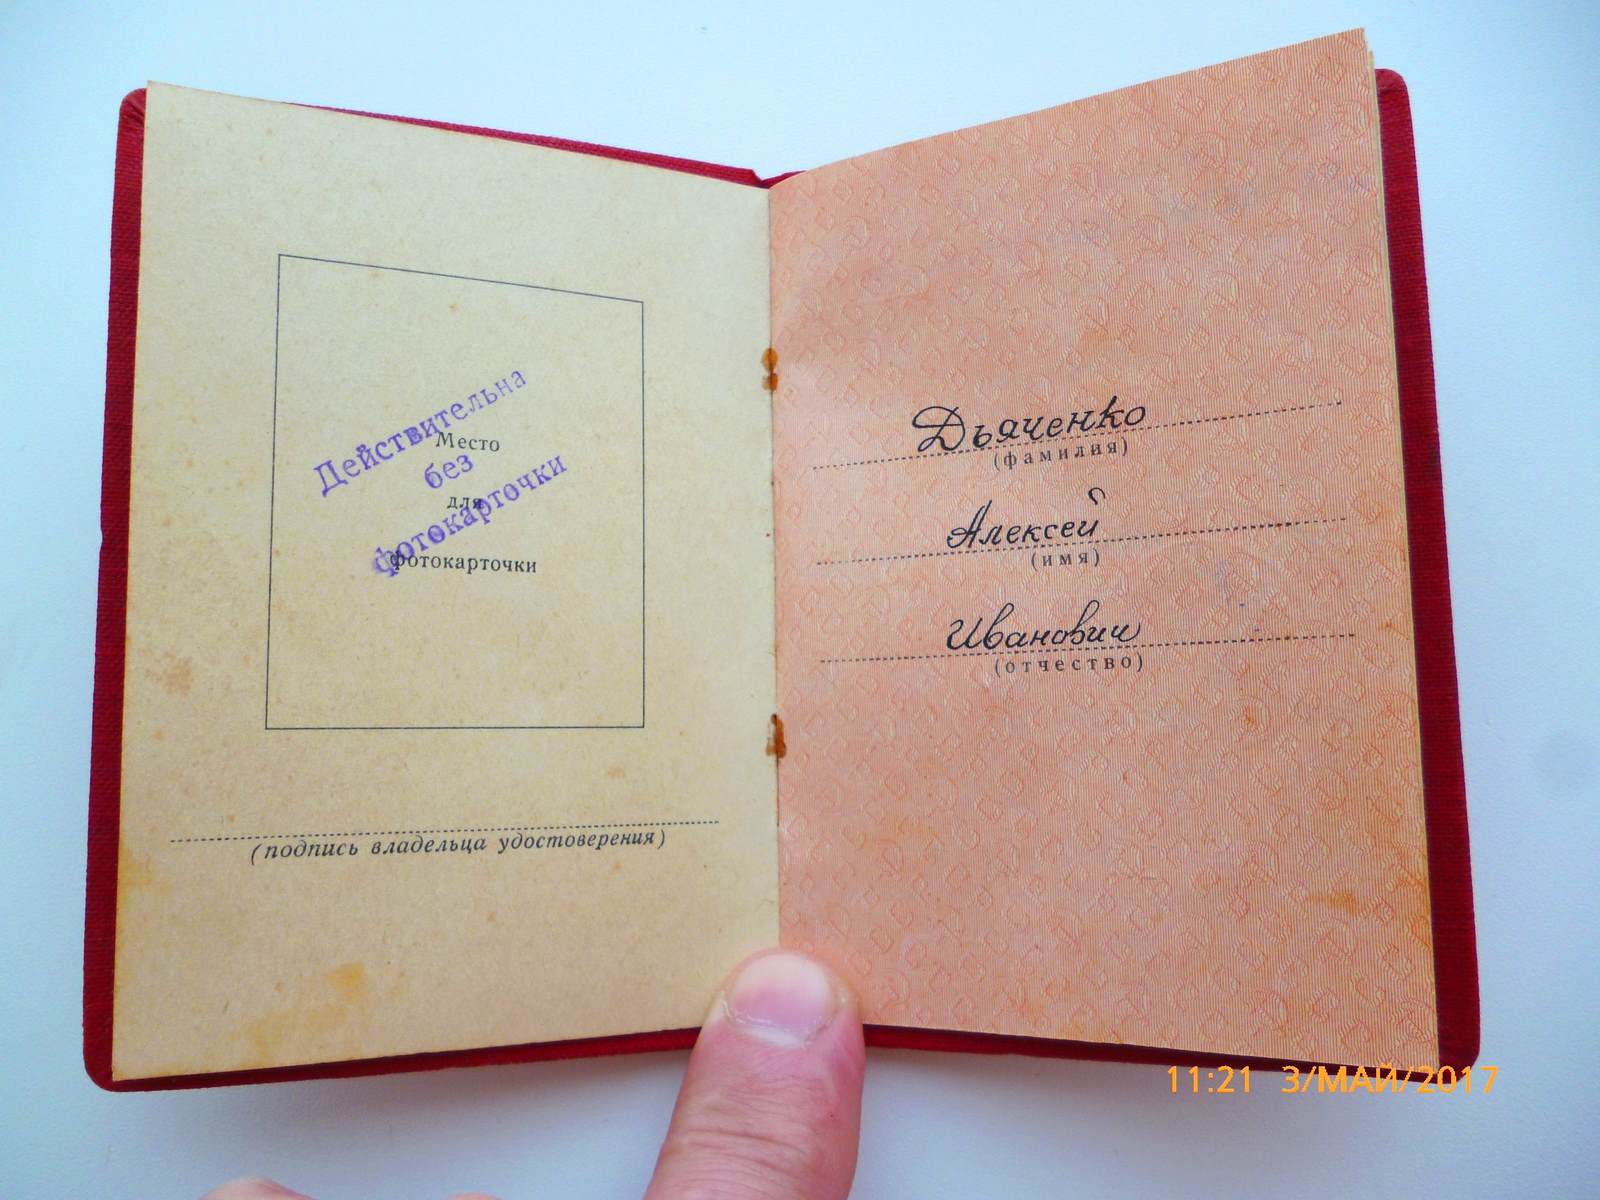 Действительна
без
фотокарточки
Место
для
фотокарточки
(подпись владельца удостоверения)
Дьяченко
(фамилия)
Алексей
(имя)
Иванович
(отчество)
11:21 3/МАЙ/2017